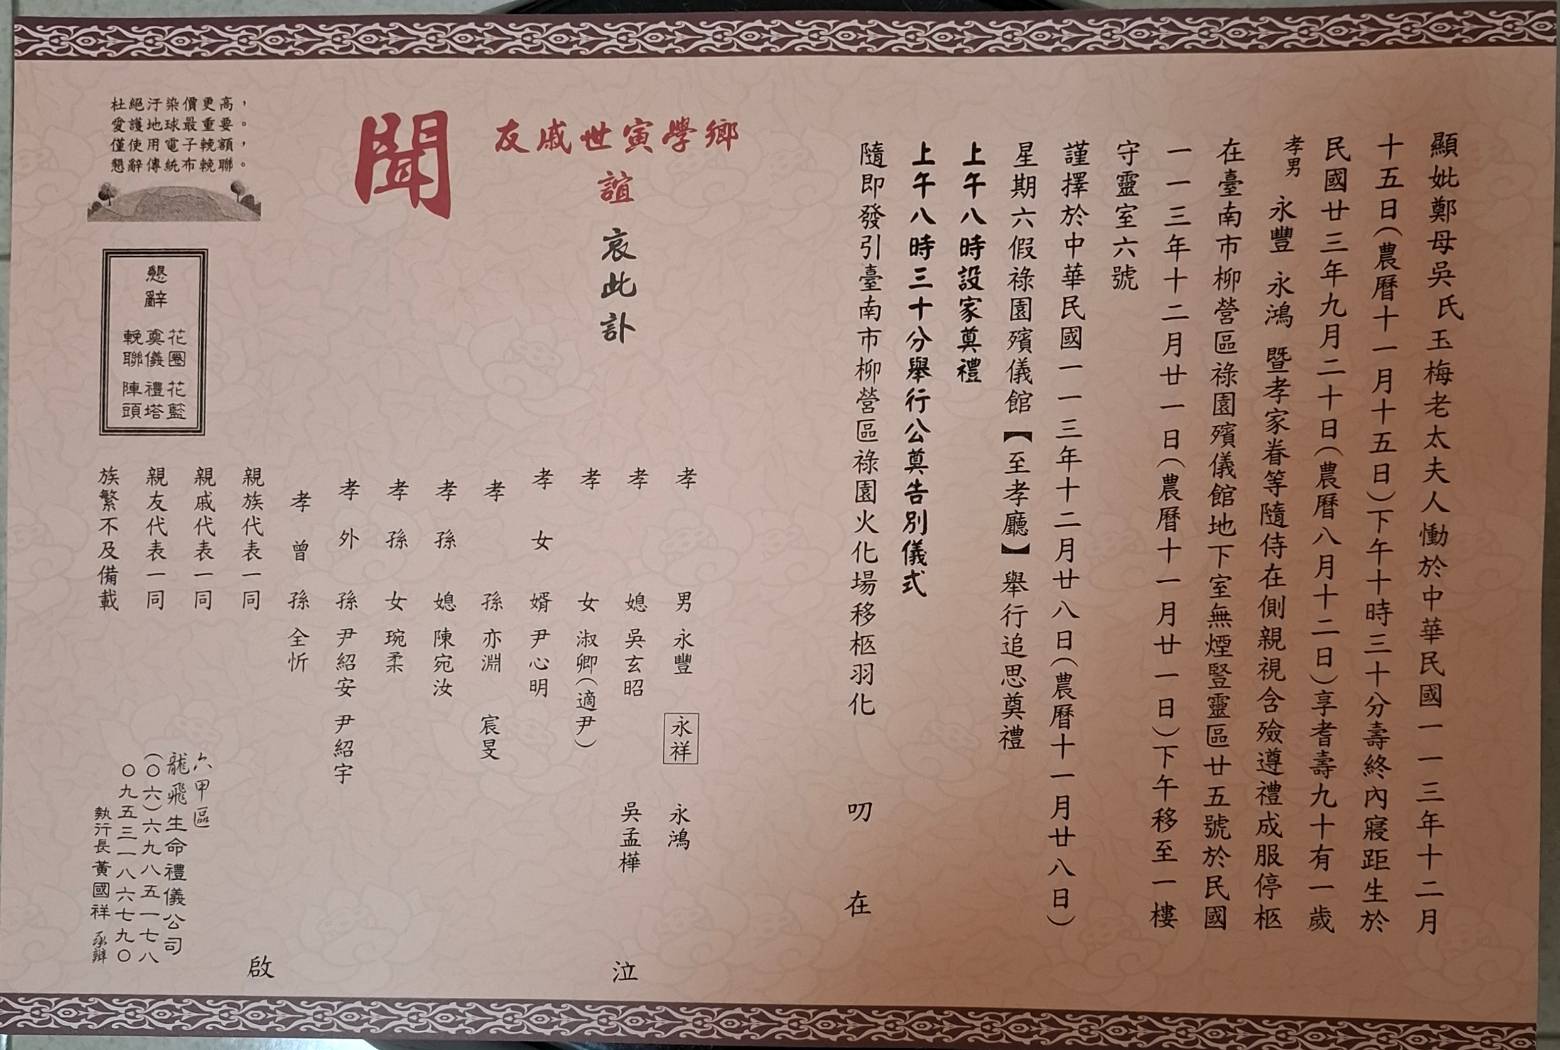 顯妣鄭母吳氏玉梅老太夫人慟於中華民國一一三年十二月
十五日(農曆十一月十五日)下午十時三十分壽終內寢距生於
民國廿三年九月二十日(農曆八月十二日)享耆壽九十有一歲
孝男 永豐 永鴻 暨孝家眷等隨侍在側親視含殮遵禮成服停柩
在臺南市柳營區祿園殯儀館地下室無煙豎靈區廿五號於民國
一一三年十二月廿一日(農曆十一月廿一日)下午移至一樓
守靈室六號
謹擇於中華民國一一三年十二月廿八日(農曆十一月廿八日)
星期六假祿園殯儀館【至孝廳】舉行追思奠禮
上午八時設家奠禮
上午八時三十分舉行公奠告別儀式
隨即發引臺南市柳營區祿園火化場移柩羽化 叨在
鄉學寅世戚友
誼 哀此訃
聞
孝男 永豐 永祥 永鴻
孝媳 吳玄昭 吳孟樺
孝女 淑卿(適尹)
孝女婿 尹心明
孝孫 亦淵 宸旻
孝孫媳 陳宛汝
孝孫女 琬柔
孝外孫 尹紹安 尹紹宇
孝曾孫 全忻
泣
親族代表一同
親戚代表一同
親友代表一同
族繁不及備載
啟
杜絕汙染價更高,
愛護地球最重要。
僅使用電子輓額,
懇辭傳統布輓聯。
懇辭
花圈 花籃
奠儀 禮塔
輓聯 陣頭
六甲區
龍飛生命禮儀公司
(〇六)六九八五一七八
〇九五三一八六七九〇
執行長 黃國祥 承辦